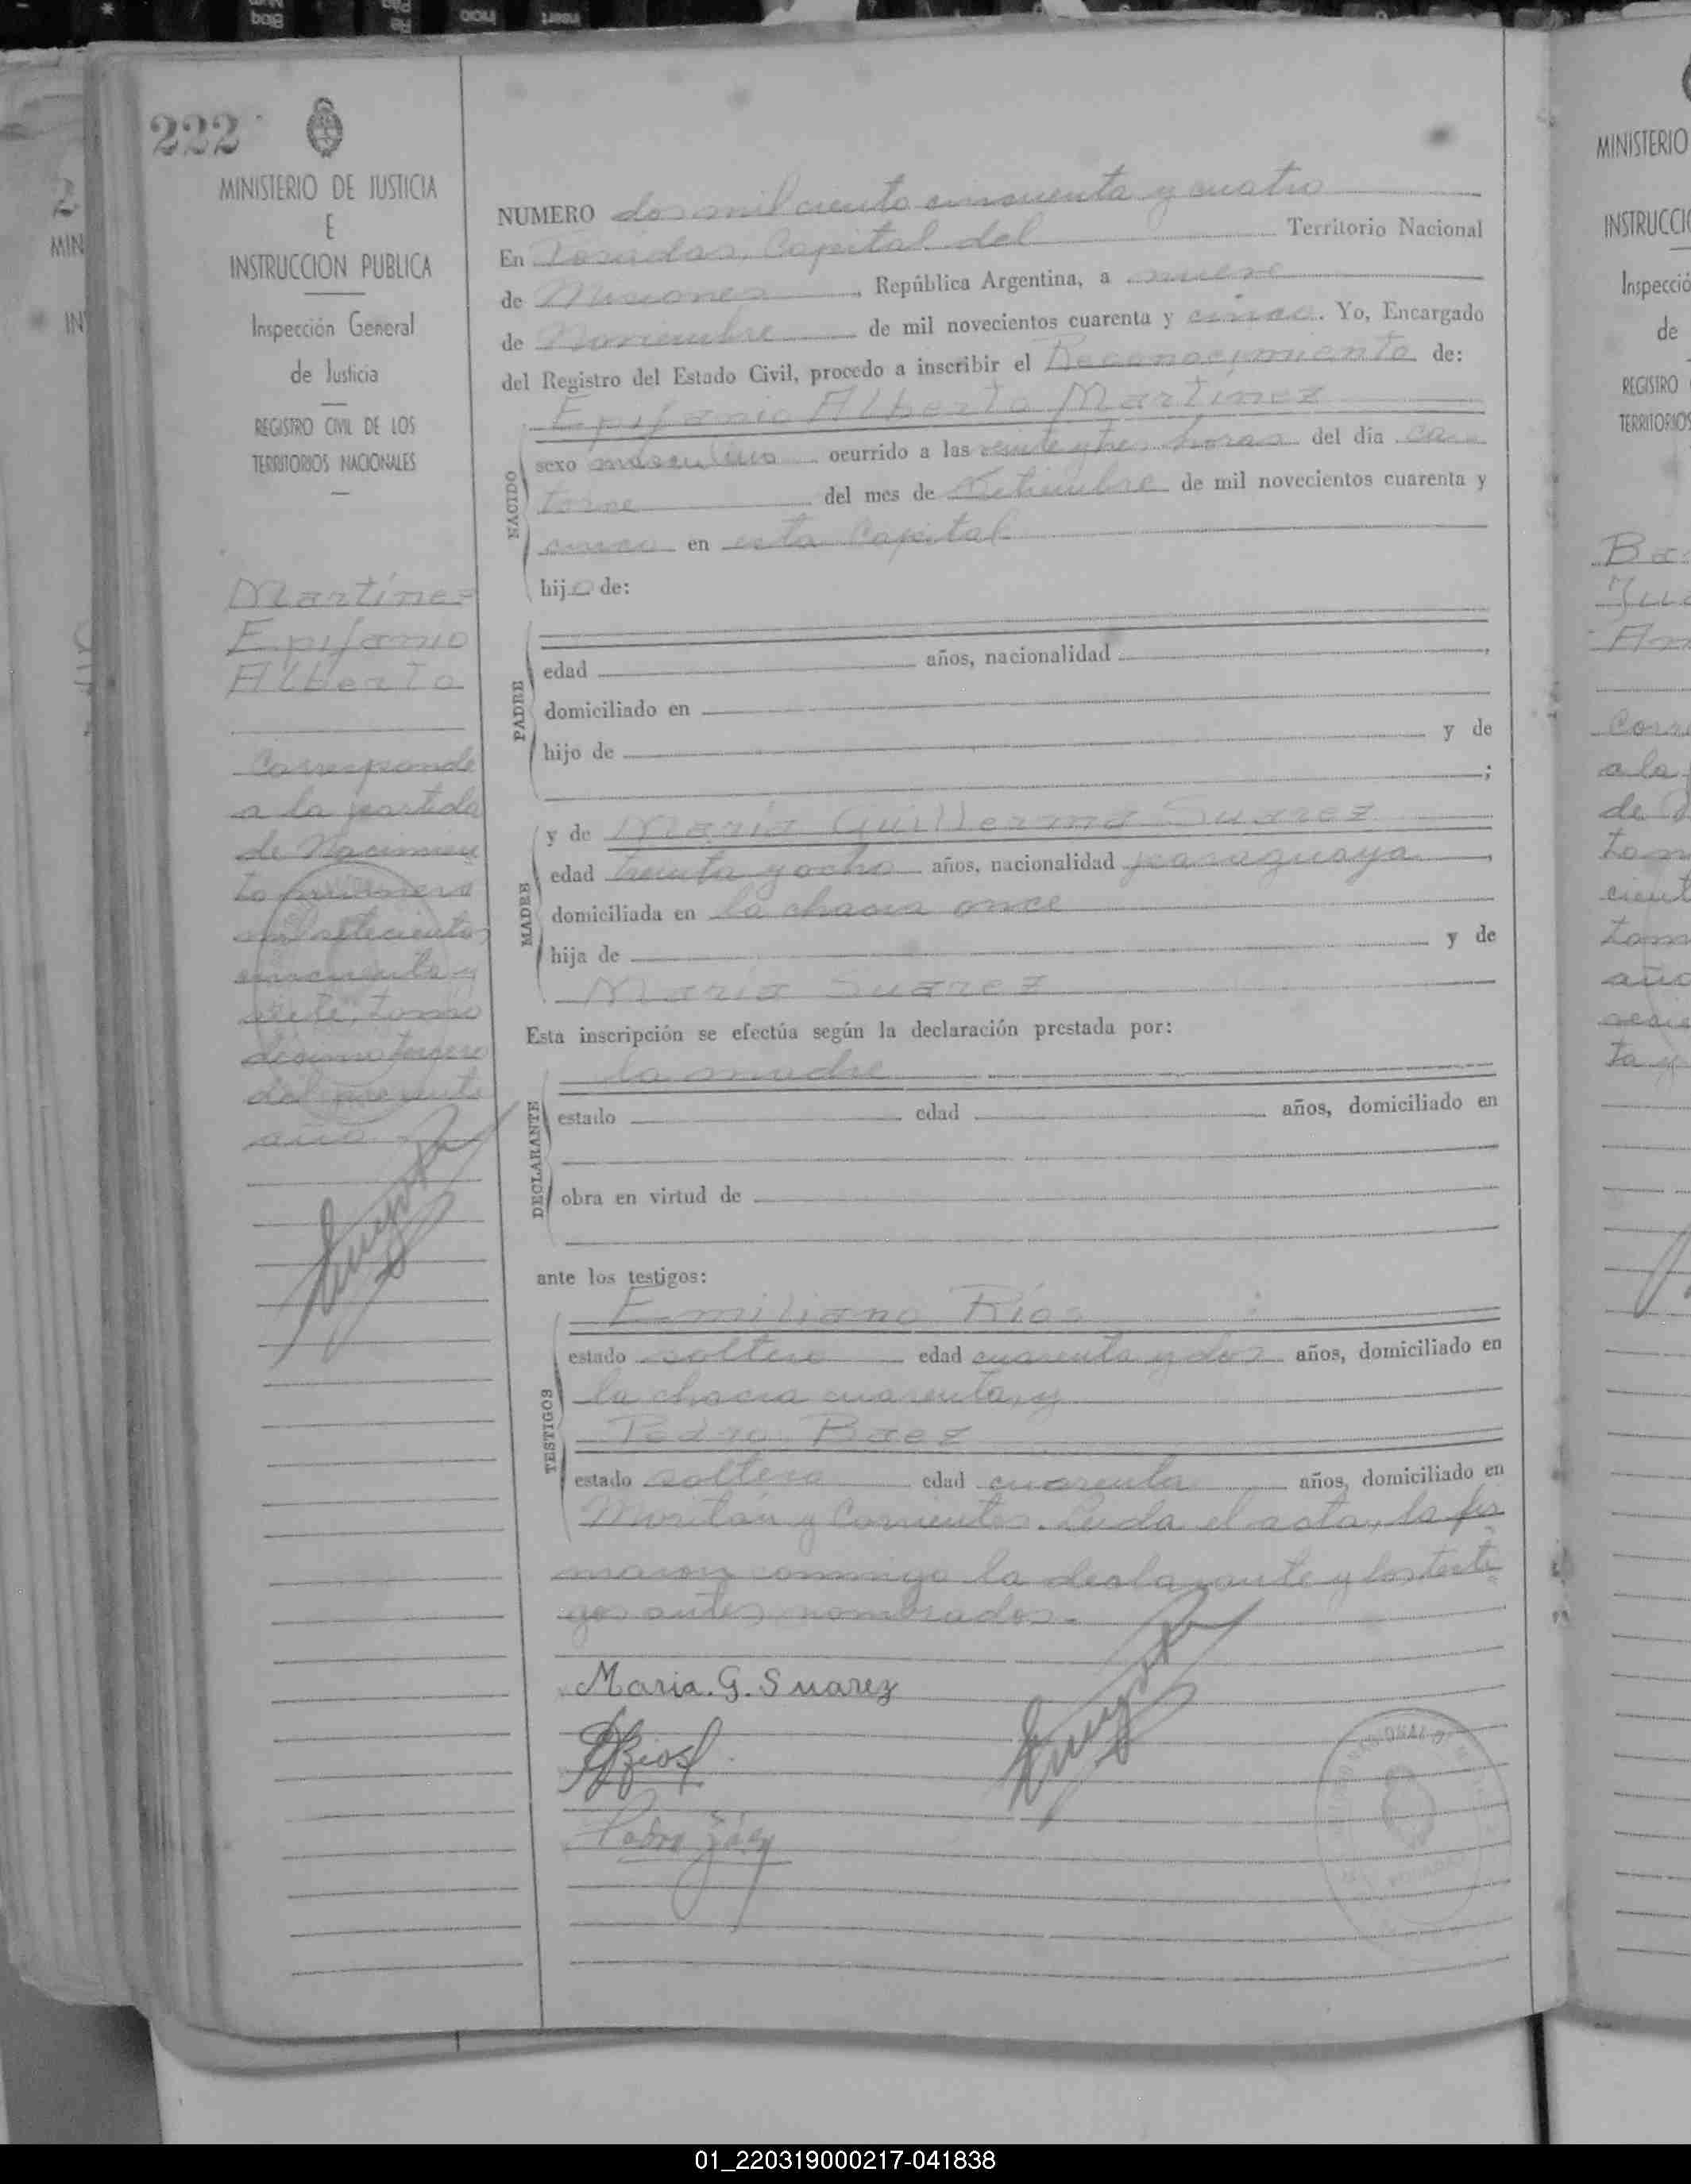 222
MINISTERIO DE JUSTICIA
E
INSTRUCCION PUBLICA
Inspección General
de Justicia
REGISTRO CIVIL DE LOS
TERRITORIOS NACIONALES
Martínez
Epifanio
Alberto
Corresponde
a la partida
de Nacimien
to número
mil setecientos
cincuenta y
siete, tomo
decimo tercero
del presente
año.
NUMERO dos mil ciento cincuenta y cuatro
En Posadas, Capital del Territorio Nacional
de Misiones, República Argentina, a nueve
de Noviembre de mil novecientos cuarenta y cinco. Yo, Encargado
del Registro del Estado Civil, procedo a inscribir el Reconocimiento de:
Epifanio Alberto Martinez
NACIDO
sexo masculino ocurrido a las veinte y tres horas del día ca
torce del mes de Setiembre de mil novecientos cuarenta y
cinco en esta Capital
hijo de:
PADRE
edad años, nacionalidad ,
domiciliado en
hijo de y de
;
MADRE
y de María Guillerma Suarez
edad treinta y ocho años, nacionalidad paraguaya,
domiciliada en la chacra once
hija de y de
María Suarez
Esta inscripción se efectúa según la declaración prestada por:
la madre
DECLARANTE
estado edad años, domiciliado en
obra en virtud de
ante los testigos:
TESTIGOS
Emiliano Ríos
estado soltero edad cuarenta y dos años, domiciliado en
la chacra cuarenta, y
Pedro Baez
estado soltero edad cuarenta años, domiciliado en
y Corrientes. Leida el acta, la fir
maron conmigo la declarante y los testi
gos antes nombrados.-
Maria. G. Suarez
Rios
MINISTERIO
INSTRUCCIÓ
Inspecció
de
REGISTRO
TERRITORIOS
01_220319000217-041838